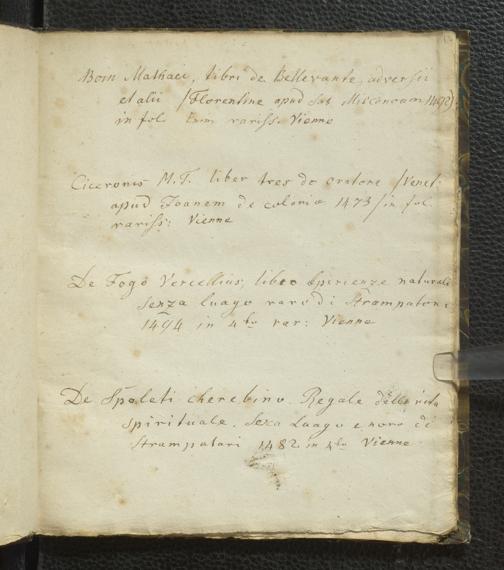 Bom Mathaei, libri de Bellevante, adversii
et alii (Florentine apud Sat Miscomam 1492)
in fol. Lum rariss. Vienne
Ciceronis M.T. liber tres de oratore (Venet:
apud Joanem de colonia 1473 / in fol
rariss: Vienne
De Fogo Vercellius, libro Esperienze naturali
senza luago raro di Strampatone
1494 in 4to rar: Vienne
De Spoleti cherebino. Regale della vita
spirituale. Seza Luago e noro di
Strampatari 1482 in 4to Vienne